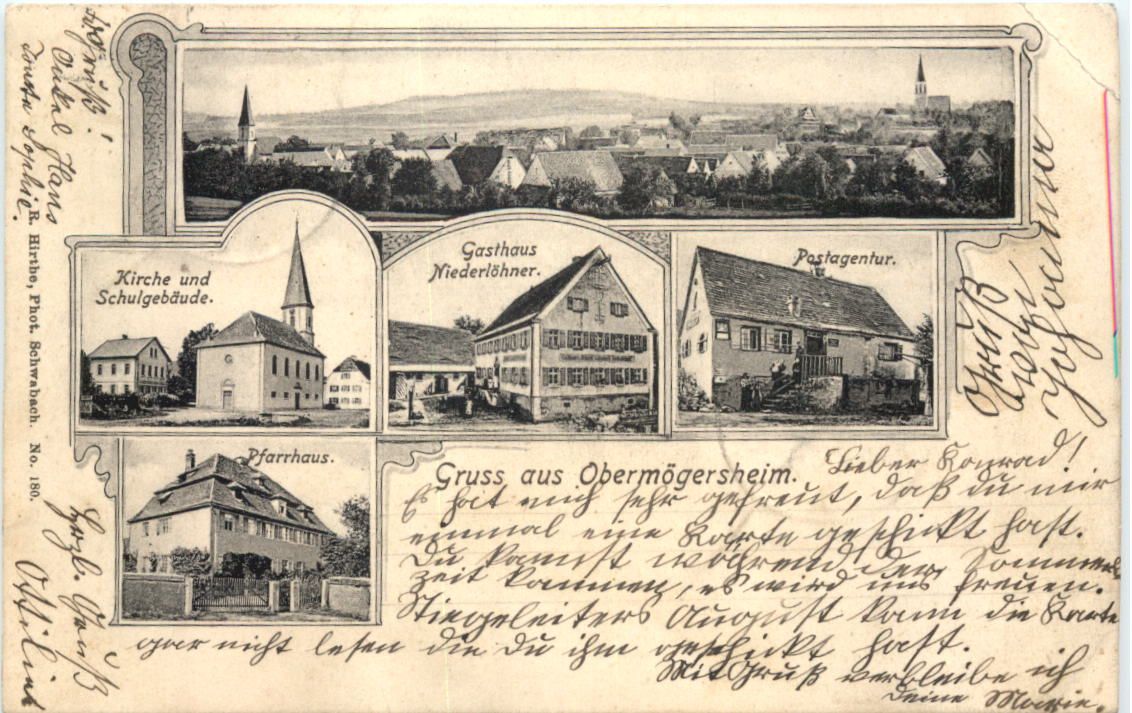 Kirche und
Schulgebäude.
Gasthaus
Niederlöhner.
Postagentur.
Pfarrhaus.
Gruss aus Obermögersheim.
Lieber Konrad!
Es hat mich sehr gefreut, daß du mir
einmal eine Karte geschickt hast.
Du kannst während der Sommers
zeit kommen, es wird uns freuen.
Stiegeleiters August kann die Karte
gar nicht lesen die Du ihm geschickt hast.
Mit Gruß verbleibe ich
deine Marie.
Gruß
Johanna
Gruß!
Onkel Hans
Tante Sophie.
R. Hirthe, Phot. Schwabach. No. 180.
Herzl. Gruß
Ottilie